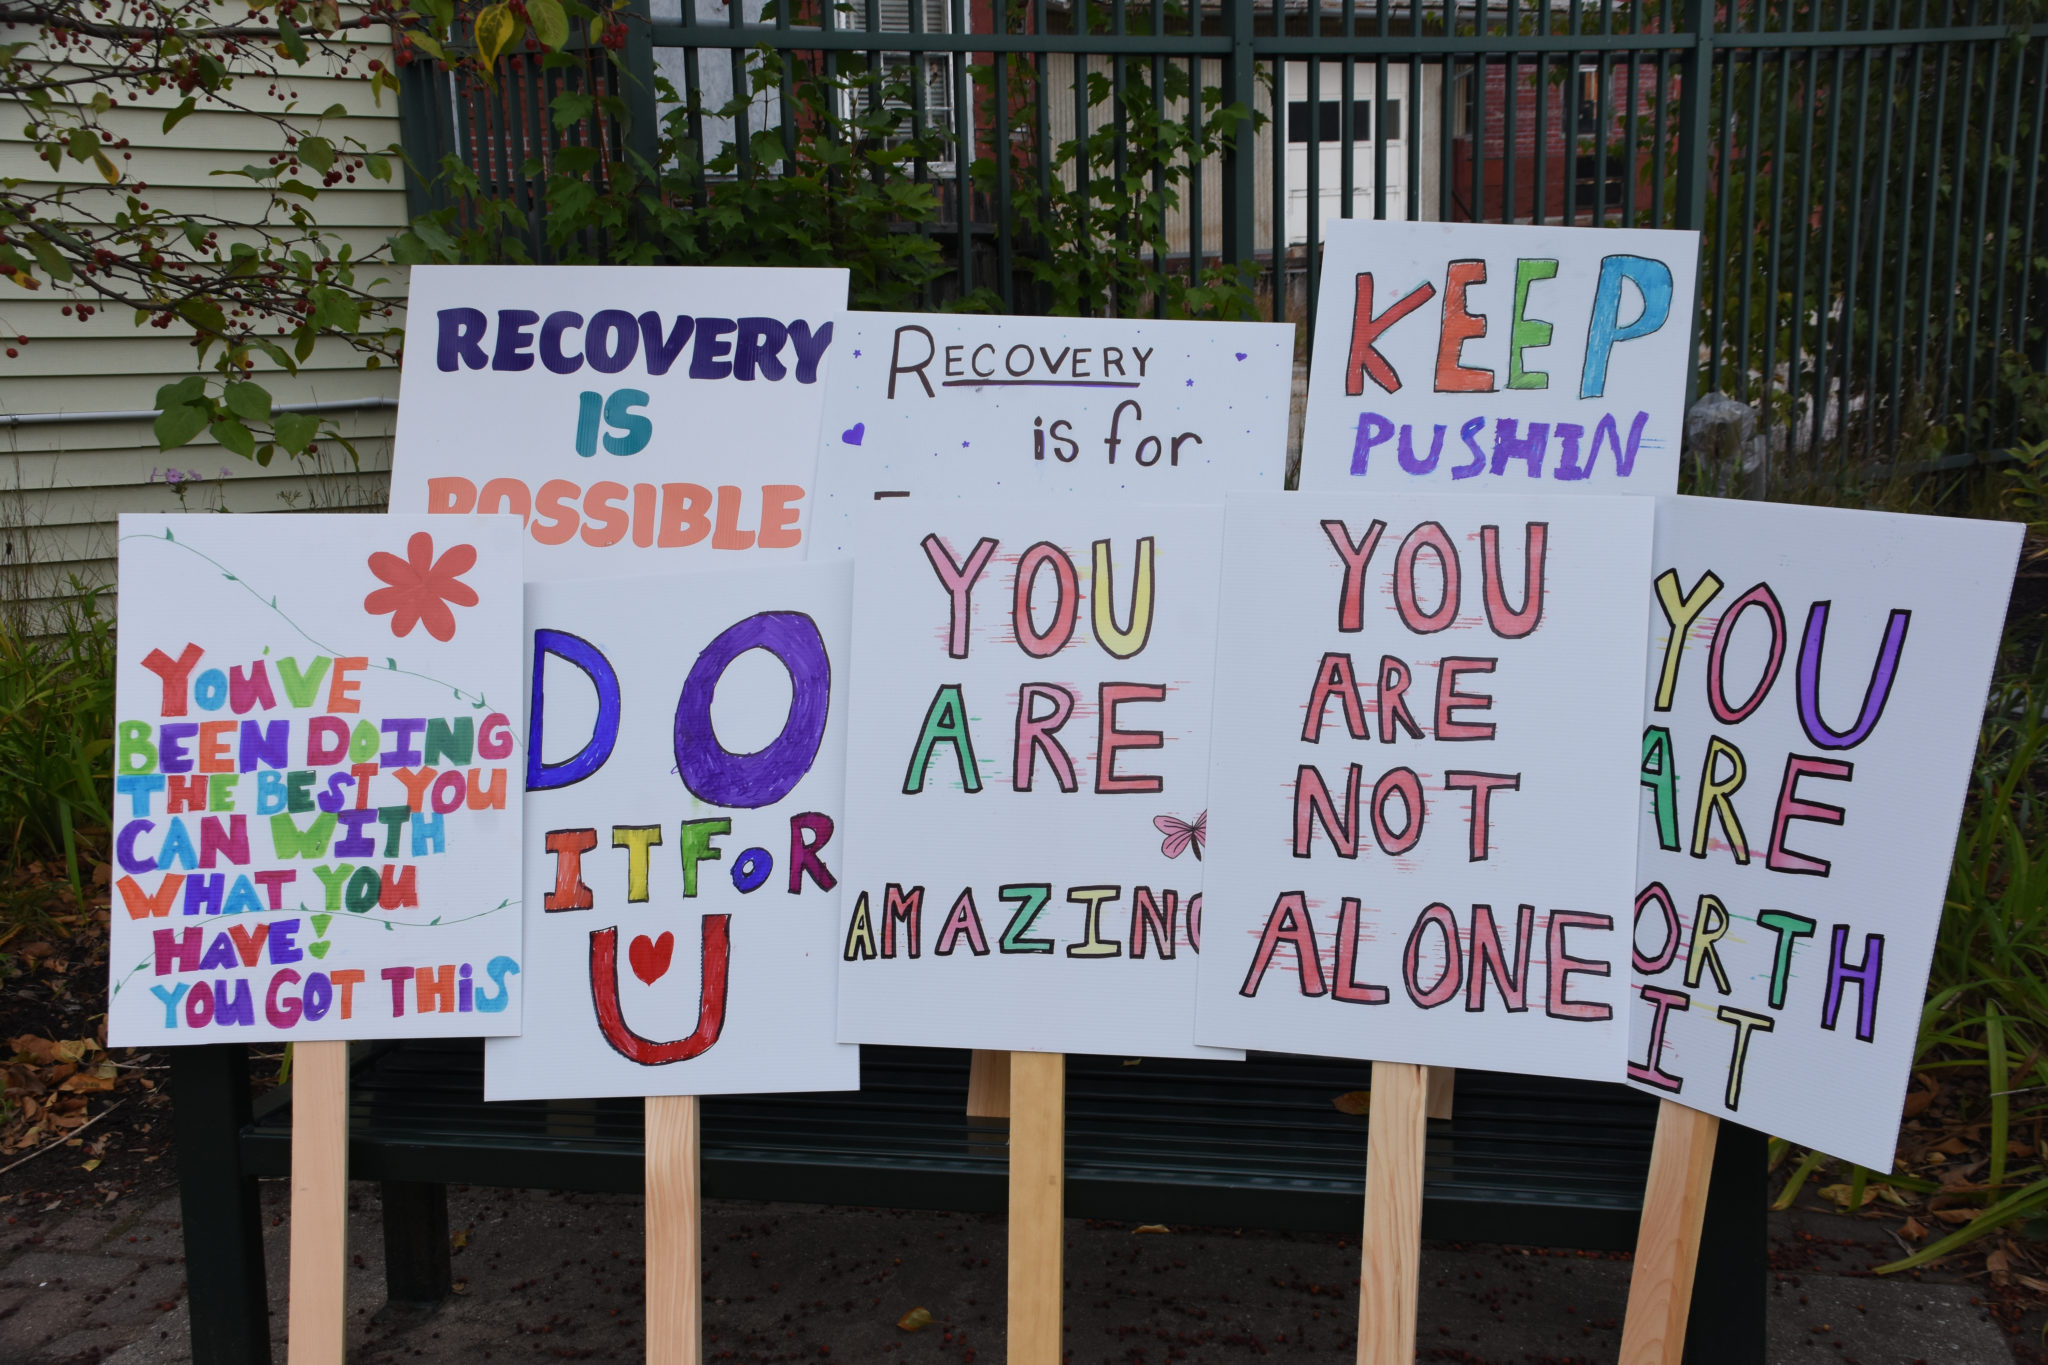 RECOVERY
IS
POSSIBLE
RECOVERY
is for
KEEP
PUSHIN
YOU'VE
BEEN DOING
THE BEST YOU
CAN WITH
WHAT YOU
HAVE!
YOU GOT THiS
DO
IT FOR
U
YOU
ARE
AMAZING
YOU
ARE
NOT
ALONE
YOU
ARE
ORTH
IT